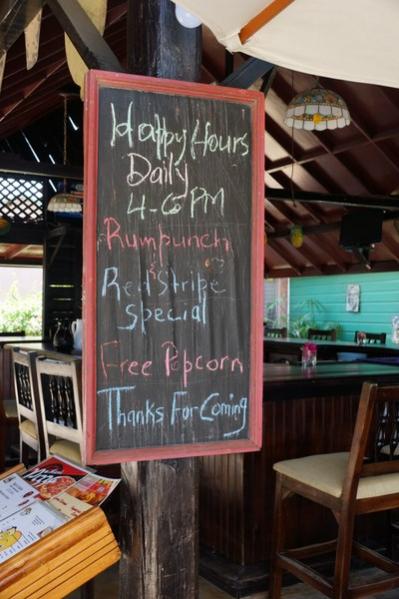 Happy Hours
Daily
4-6PM
Rumpunch
&
Red Stripe
Special
Free Popcorn
Thanks For Coming